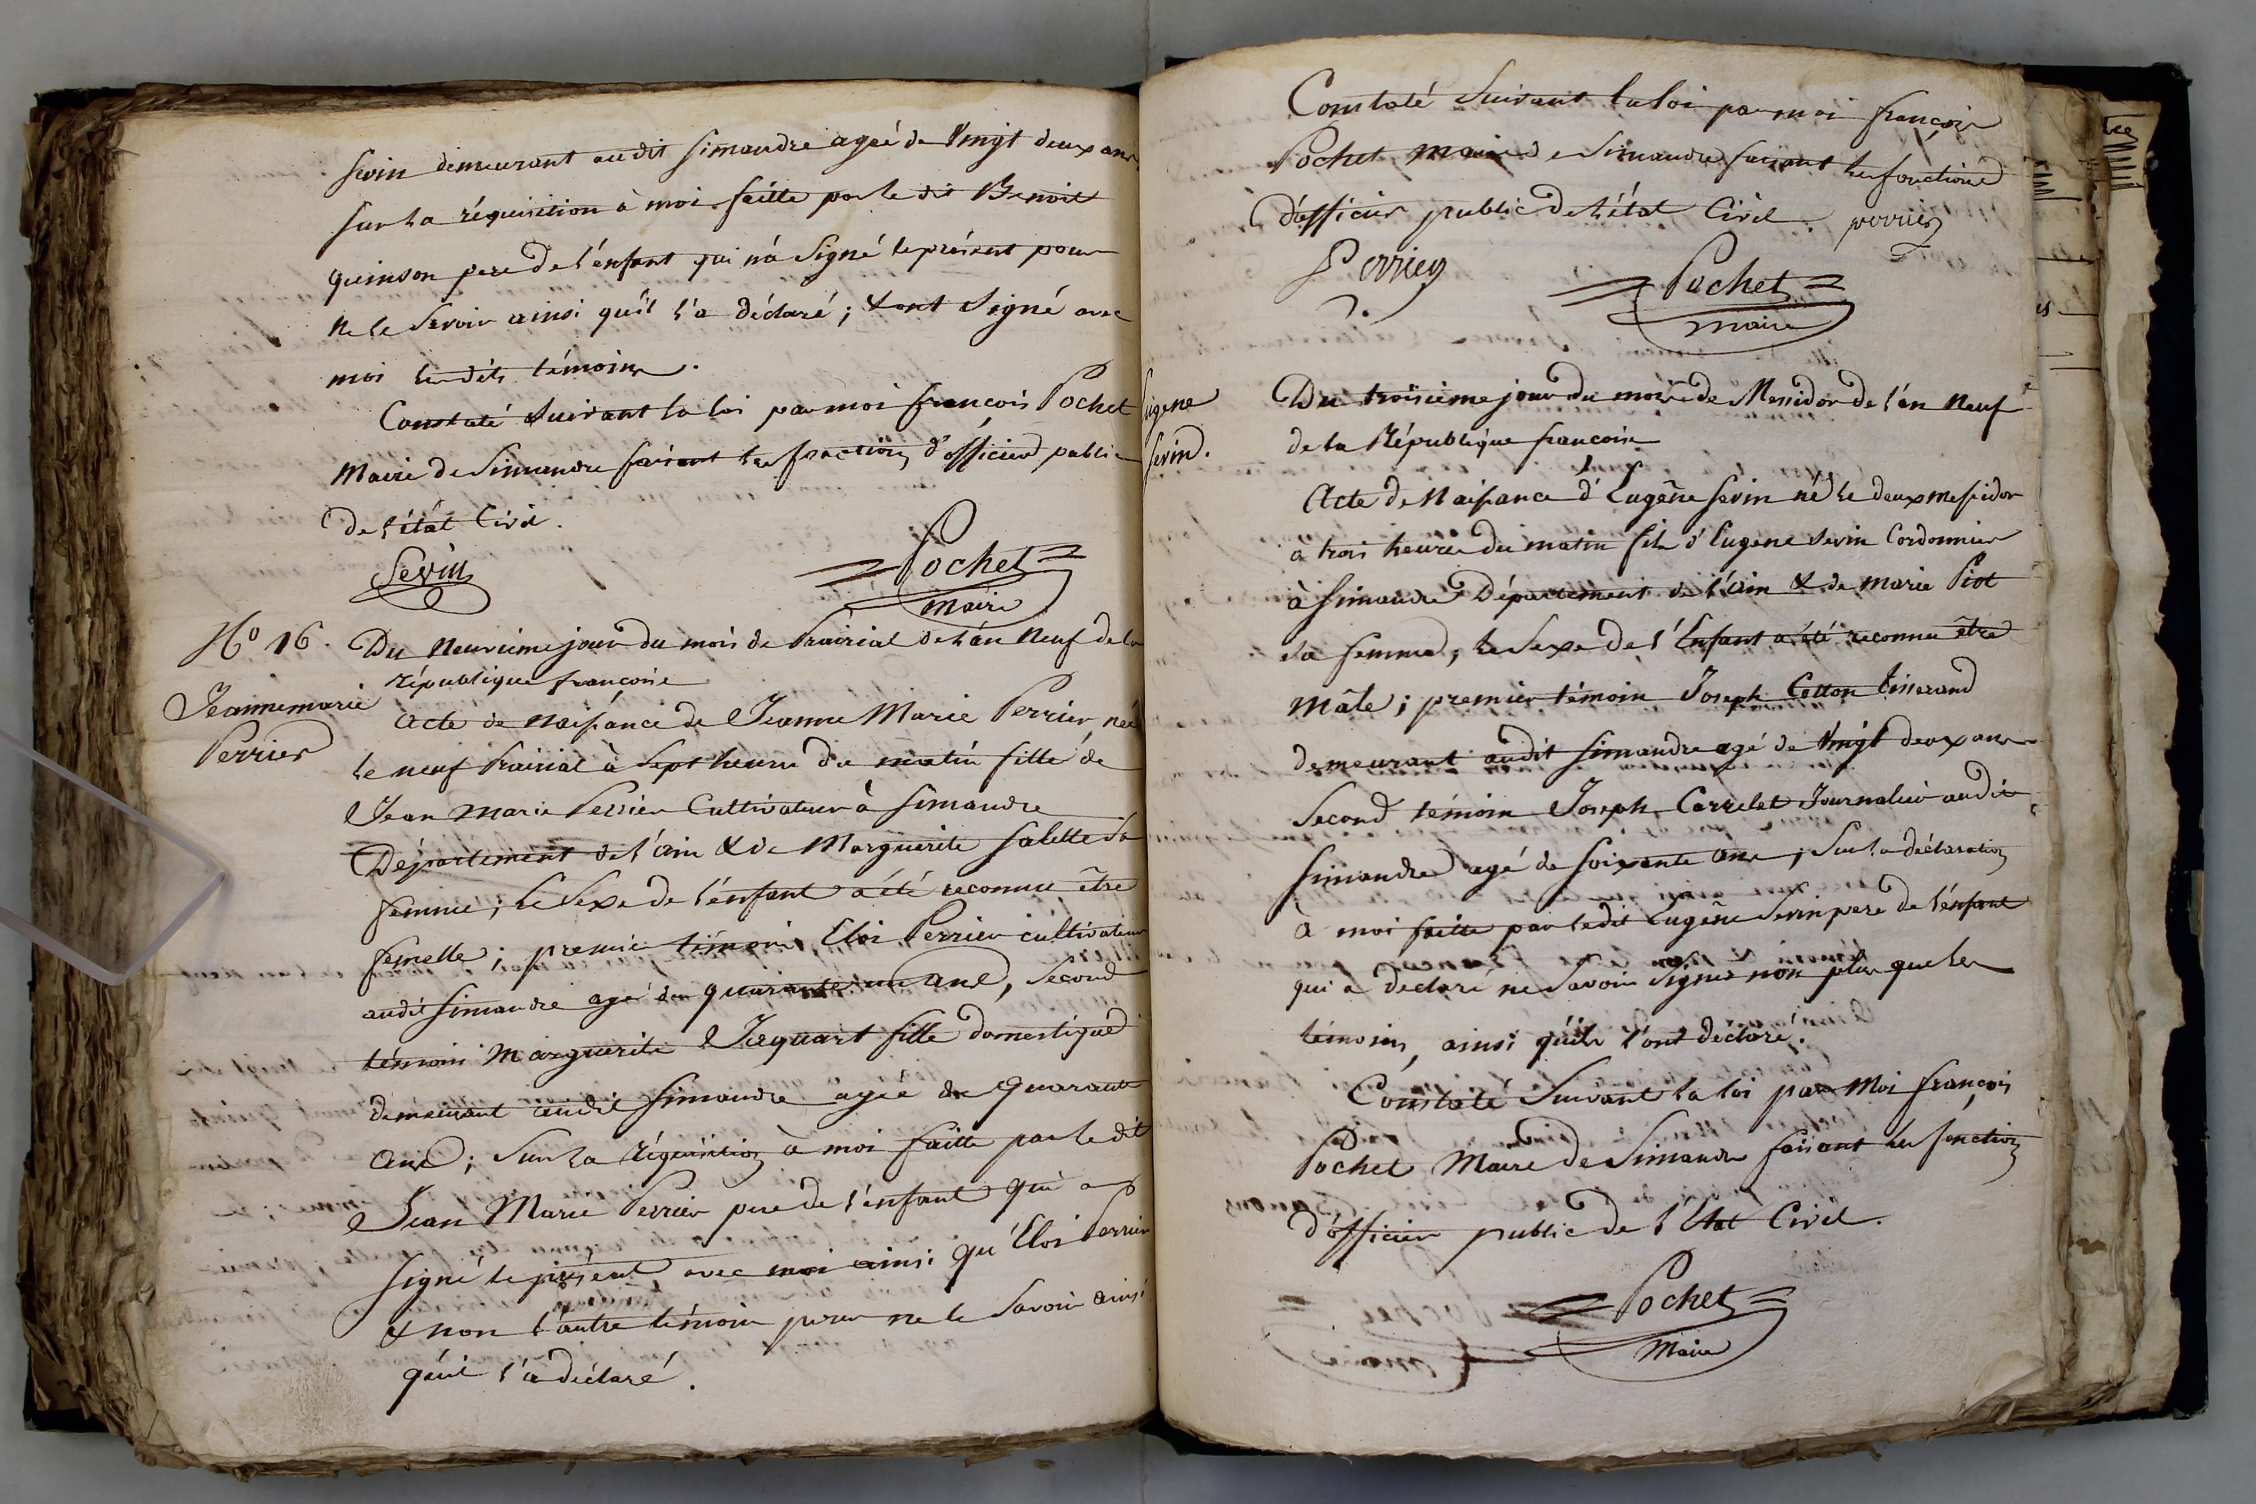 Sevin demeurant audit Simandre ageé de Vingt deux ans
sur la réquisition à moi faitte par le dit Benoit
quinson pere de l'énfant qui n'a Signé le présent pour
ne le Savoir ainsi qu'il l'a déclaré; & ont Signé avec
moi les dits témoins.
Constaté Suivant la loi par moi françois Pochet
Maire de Simandre faisant les fonctions d'officier public
de l'état Civil.
Sevin
Pochet
Maire
N° 16.
Jeanne marie
Perrier
Du Neuvieme jour du mois de Prairial de l'an Neuf de la
république françoise
Acte de Naissance de Jeanne Marie Perrier, née
le neuf Prairial à Sept heures du matin fille de
Jean Marie Perrier Cultivateur à Simandre
Département de l'ain & de Marguerite Salette Sa
femme; le Sexe de l'énfant a été reconnu être
femelle; premier témoin, Eloi Perrier cultivateur
audit Simandre agé de quarante un ans, Second
témoin Marguerite Jacquart fille domestique
demeurant audit Simandre agée de Quarante
ans; Sur la réquisition à moi faitte par le dit
Jean Marie Perrier pere de l'énfant qui a
Signé le présent avec moi ainsi qu'Eloi Perrier
& non l'autre témoin pour ne le Savoir ainsi
qu'il l'a déclaré.
Constaté Suivant la loi par moi françois
Pochet Maire de Simandre faisant les fonctions
d'officier public de l'état Civil. perrier
Perrier
Pochet
maire
Eugene
Sevin.
Du troisieme jour du mois de Messidor de l'an Neuf
de la République françoise
Acte de Naissance d'Eugêne Sevin né le deux messidor
à trois heures du matin fils d'Eugene Sevin Cordonnier
à Simandre Département de l'ain & de marie Piot
sa femme, le Sexe de l'Enfant a été reconnu être
Mâle; premier témoin Joseph Cotton tisserand
demeurant audit Simandre agé de Vingt deux ans
Second témoin Joseph Carrelet Journalier audit
Simandre agé de Soixante ans; Sur la déclaration
à moi faitte par ledit Eugêne Sevin pere de l'énfant
qui a déclaré ne Savoir Signer non plus que les
témoins, ainsi qu'ils l'ont déclaré.
Constaté Suivant la loi par Moi françois
Pochet Maire de Simandre faisant les fonctions
d'officier public de l'Etat Civil.
Pochet
Maire